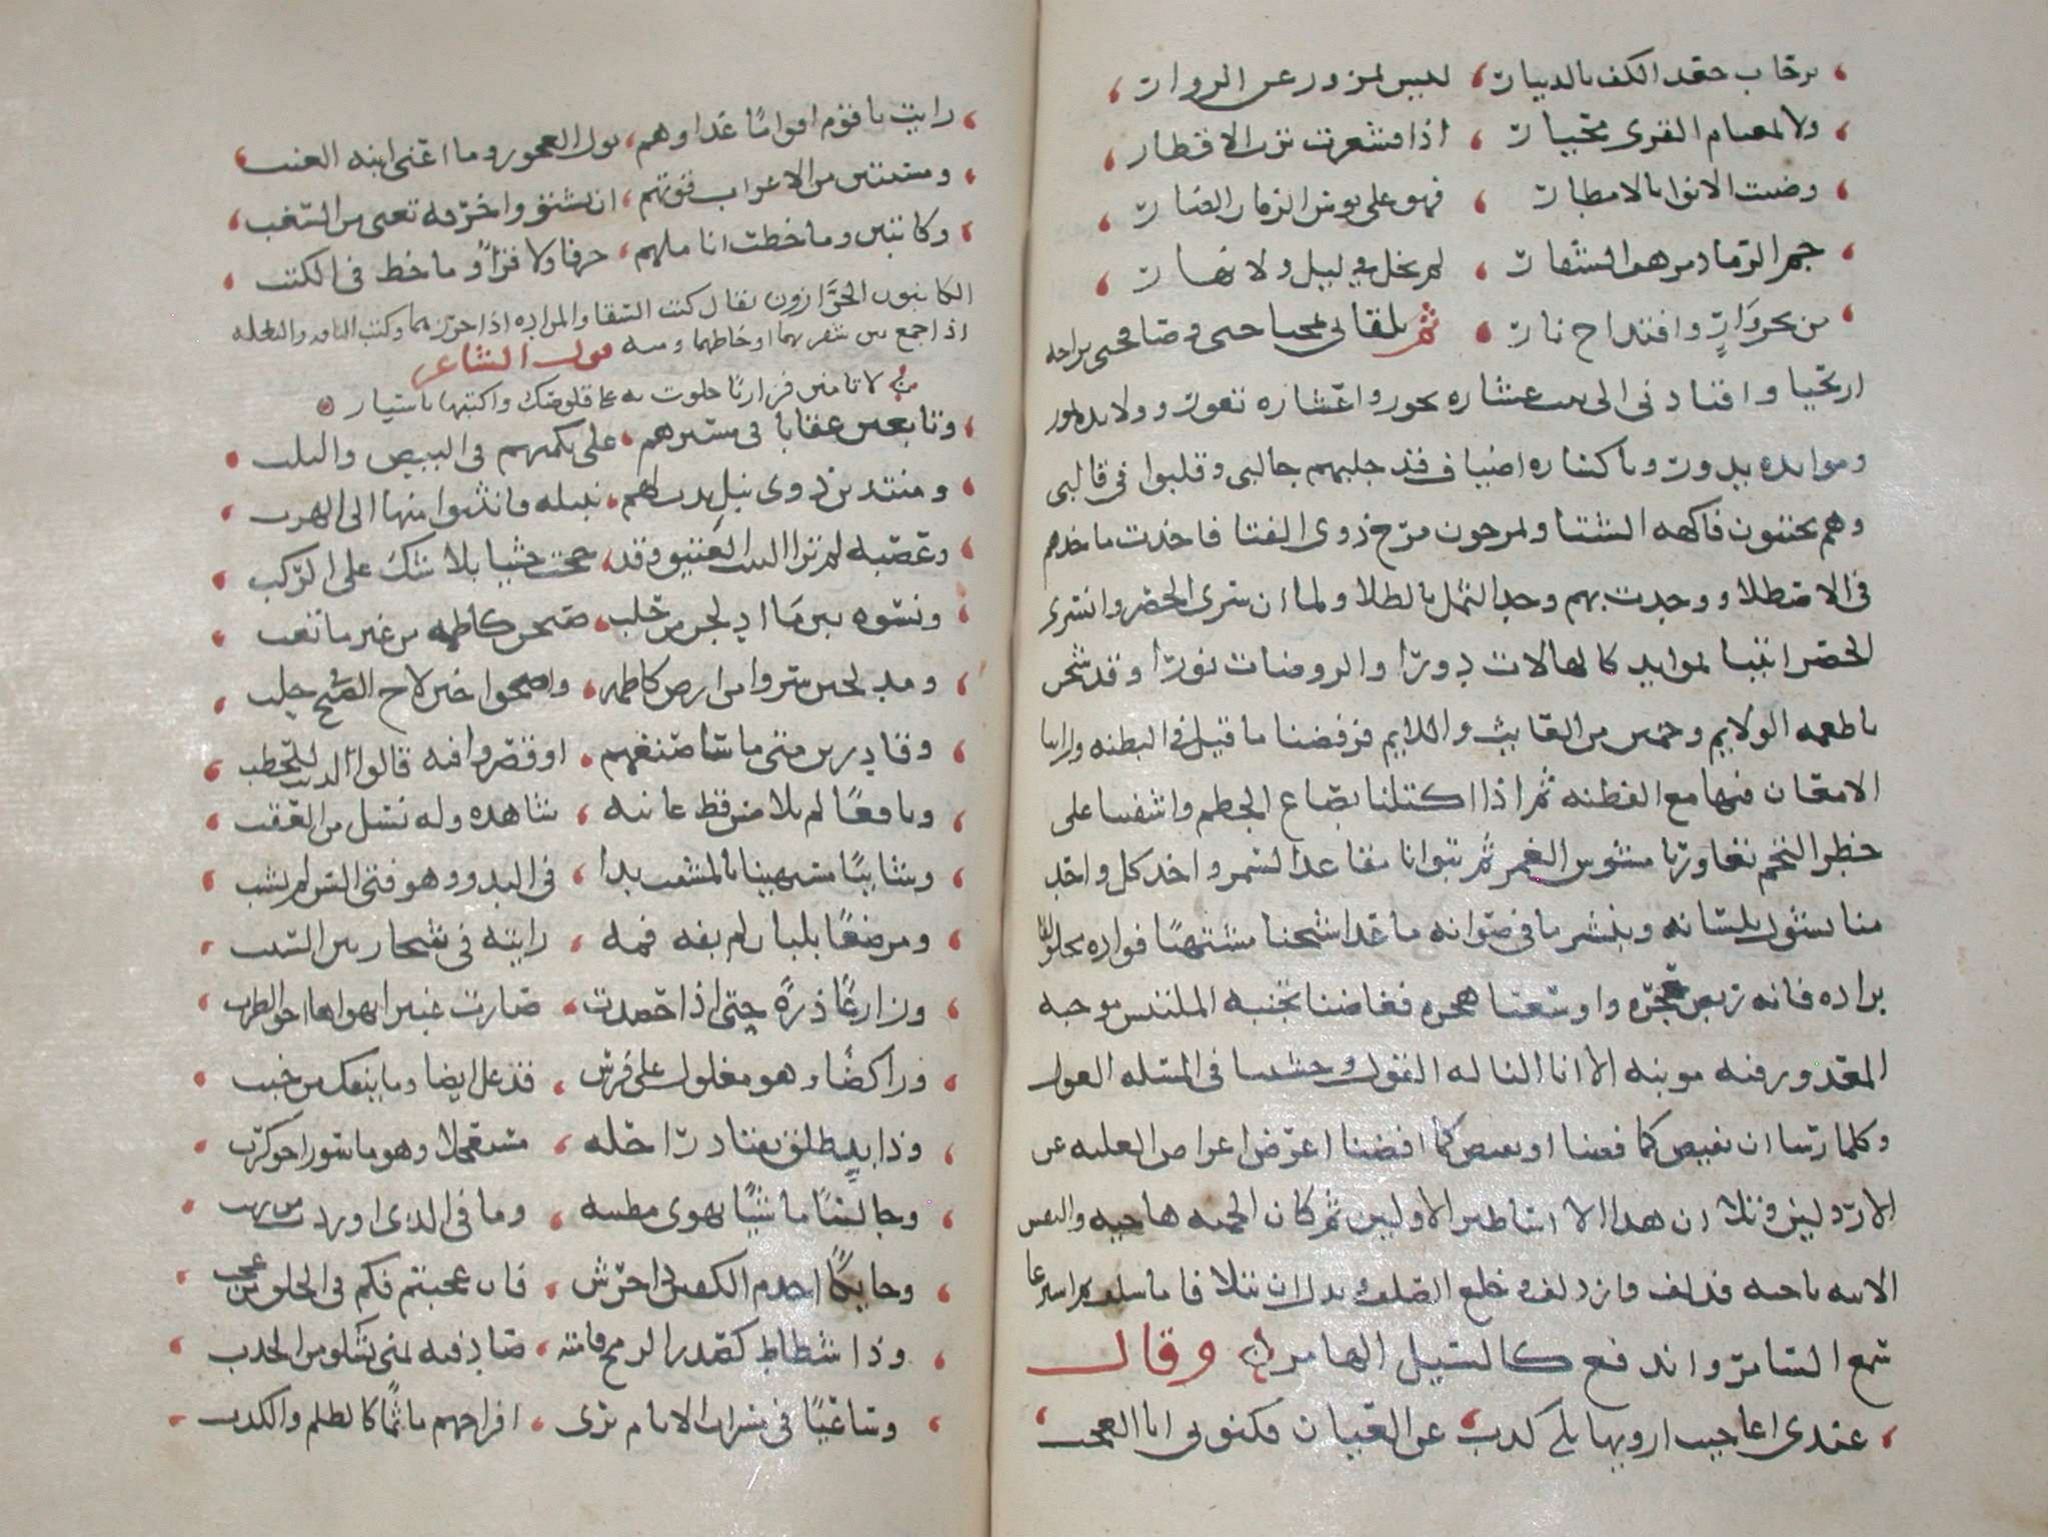 برحاب جفد الكف بالدينار ليس بمزور عن الزوار
ولا بمعتام القرى مخيار اذا اقشعرت ترب الاقطار
وضنت الانوا بالامطار فهو على بوس الزمان الضار
جم الرماد مرهف الشفار لم يخل في ليل ولا نهار
من نحر وارٍ واقتداح نار ثم تلقاني بمحيا حيي وصافحني براحه
اريحيا واقتادني الى بيت عشاره تخور واعشاره تفور وولايده تمور
وموايده تدور وباكساره اضياف قد جلبهم جالبي وقلبوا في قالبي
وهم يجتنون فاكهه الشتا ويمرحون مرح ذوي الفتا فاخذت ماخذهم
في الاصطلا ووجدت بهم وجد الثمل بالطلا ولما ان سرى الحصر وانسرى
الخصر اتينا بموايد كالهالات دورًا والروضات نورًا وقد شحن
باطعمه الولايم وحمين من العايب واللايم فرفضنا ما قيل في البطنه وراينا
الامعان فيها مع الفطنه ثم اذا اكتلنا بصاع الحطم واشفينا على
خطر التخم تعاورنا مشوش الغمر ثم تبوانا مقاعد السمر واخذ كل واحد
منا يشول بلسانه وينشر ما في صوانه ما عدا شيخنا مشتهبًا فوداه مخلولقا
برداه فانه ربض حجره واوسعنا هجره فغاظنا تجنبه الملتبس موجبه
المعذور فيه مونبه الا انا النا له القول وخشينا في المسله العول
وكلما رمنا ان يفيض كما فضنا او يفيض كما افضنا اعرض اعراض العليه عن
الارذلين وتلا ان هذا الا اساطير الاولين ثم كان الحميه هاجته والنفس
الابيه ناجته فدلف وازدلف وخلع الصلف وبذل ان يتلافا ما سلف ثم استرعا
سمع السامر واندفع كالسيل الهامر وقال
عندي اعاجيب ارويها بلا كذب عن العيان فكنوني ابا العجب
رايت يا قوم اقوامًا غذاوهم بول العجوز وما اعني ابنه العنب
ومسنتين من الاعراب قوتهم ان يشتووا خرقه تغني من السغب
وكاتبين وما خطت اناملهم حرفا ولا قراو ما خط في الكتب
الكاتبون الخرازون يقال كتب السقا والمزاده اذا خرزهما وكتب الناقه والبغله
اذا جمع بين شفريهما او خاطهما ومنه قول الشاعر
لا تامنن فزاريًا خلوت به على قلوصك واكتبها باسيار
وتابعين عقابا في مسيرهم على تكميهم في البيض واليلب
ومنتدين ذوي نبل بدت لهم نبيله فانثنوا منها الى الهرب
وعصبه لم تر البيت العتيق وقد حجت جثيا بلا شك على الركب
ونسوه بين ما ادلجن من حلب صبحن كاظمه من غير ما تعب
ومدلجين سروا من ارض كاظمه واصبحوا حين لاح الصبح في حلب
وقادرين متى ما سا صنعهم او قصروا فيه قالوا الذنب للحطب
ويافعًا لم يلامس قط غانيه شاهده وله نسل من العقب
وشايبًا غير مخف للمشيب بدا في البدو وهو فتي السن لم يشب
ومرضعًا بلبان لم يفه فمه رايته في شجار بين السبب
وزارعًا ذرةً حتى اذا حصدت صارت غبيرا يهواها اخو الطرب
وراكبًا وهو مغلول على فرس قد غل ايضا وما ينفك من خبب
وذا يدٍ طلق يقتاد راحله مستعجلا وهو ماسور اخو كرب
وجالسًا ماشيًا تهوي مطيته به وما في الذي اوردت من ريب
وحايكًا اجذم الكفين ذا خرس فان عجبتم فكم في الخلق من عجب
وذا شطاط كصدر الرمح قامته صادفته بمنى يشكو من الحدب
وساعيًا في مسرات الانام يرى افراحهم ماثمًا كالظلم والكذب